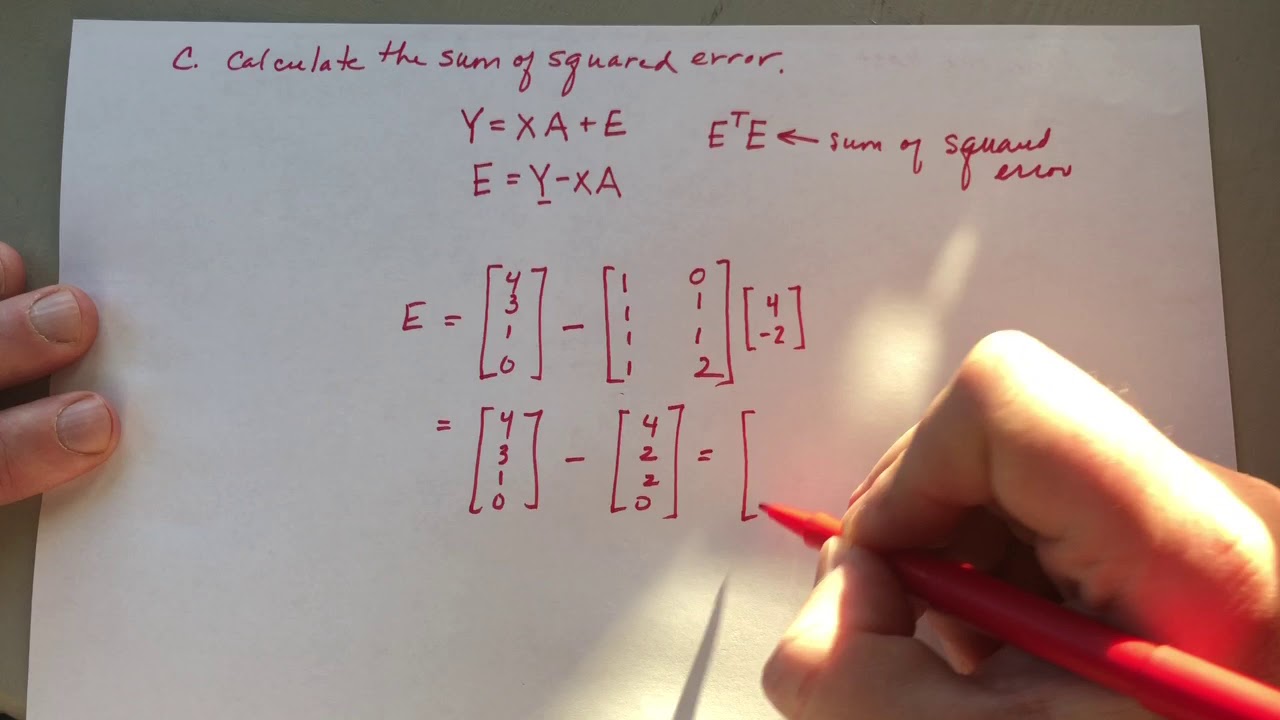 C. Calculate the sum of squared error.
Y = XA + E
EᵀE ← sum of squared error
E = Y - XA
E = [4 3 1 0] - [1 0 1 1 1 1 1 2] [4 -2]
= [4 3 1 0] - [4 2 2 0] = [